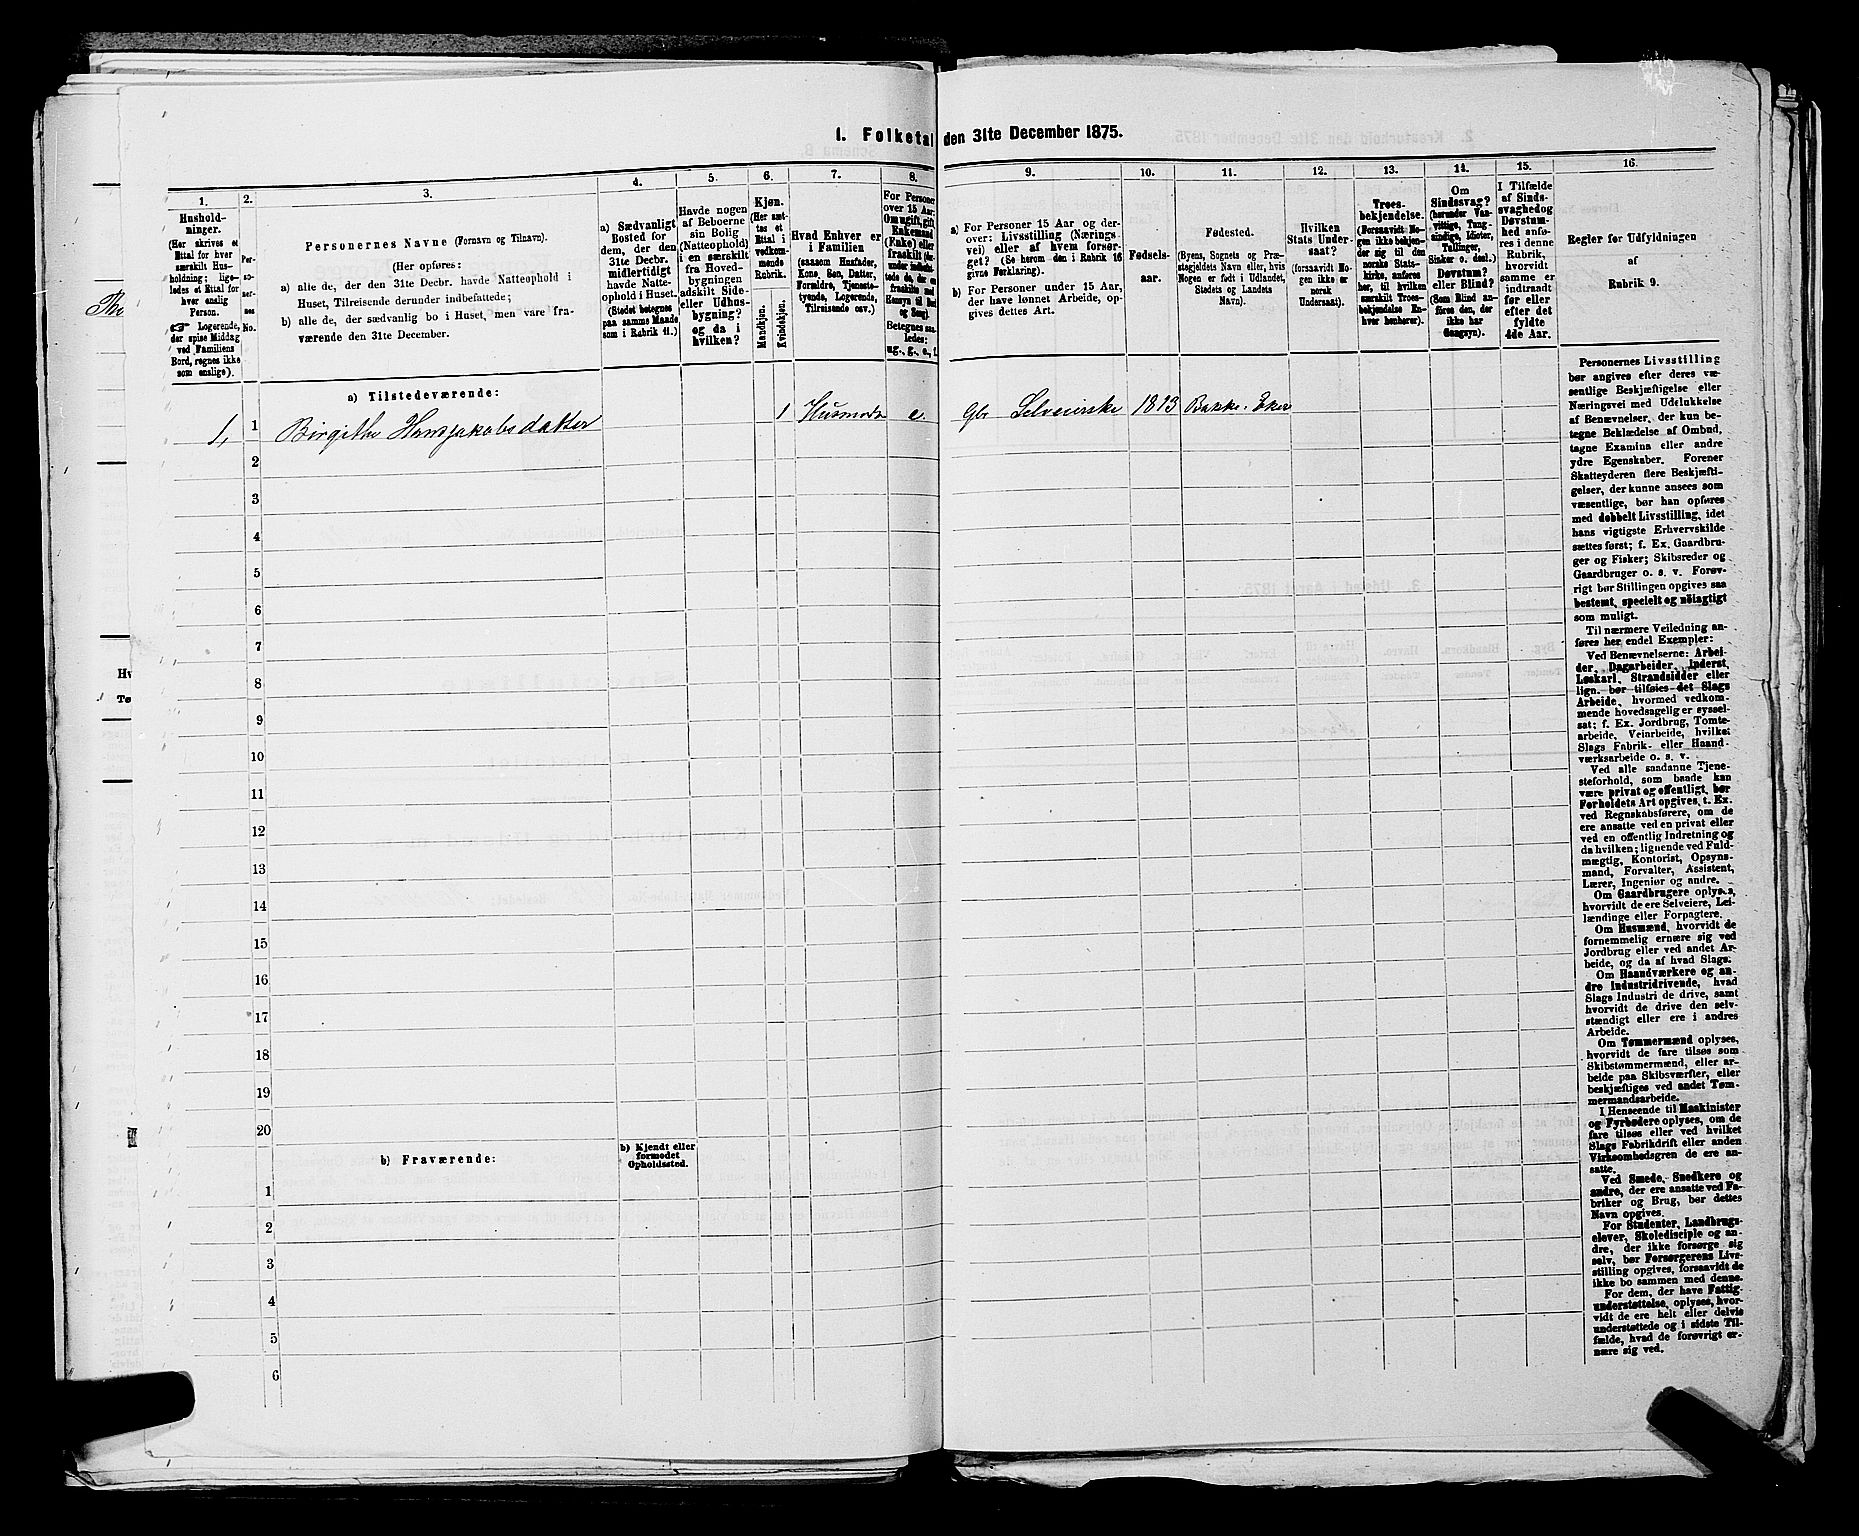 1. Folketal den 31te December 1875.
1.
Hushold-
ninger.
(Her skrives et
Ettal for hver
særskilt Hus-
holdning; lige-
ledes et Ettal for
hver enslig
Person.
☞ Logerende,
der spise Middag
ved Familiens
Bord, regnes ikke
som enslige).
2.
Per-
so-
ner-
nes
No.
3.
Personernes Navne (Fornavn og Tilnavn).
(Her opføres:
a) alle de, der den 31te Decbr. havde Natteophold i
Huset, Tilreisende derunder indbefattede;
b) alle de, der sædvanlig bo i Huset, men vare fra-
værende den 31te December.
4.
a) Sædvanligt
Bosted for
dem, der den
31te Decbr.
midlertidigt
havde Natte-
ophold i Huset.
(Stedet betegnes
paa samme Maade
som i Rubrik 11.)
5.
Havde nogen
af Beboerne
sin Bolig
(Natteophold)
i en særskilt
fra Hoved-
bygningen
adskilt Side-
eller Udhus-
bygning?
og da i
hvilken?
6.
Kjøn.
(Her sæt-
tes et
Ettal i
vedkom-
mende
Rubrik.
Mandkjøn.
Kvindekjøn.
7.
Hvad Enhver er
i Familien
(saasom Husfader,
Kone, Søn, Datter,
Forældre, Tjeneste-
tyende, Logerende,
Tilreisende osv.)
8.
For Personer
over 15 Aar:
Om ugift, gift,
Enkemand
(Enke) eller
fraskilt
Betegnes saa-
ledes:
ug., g., e., f.
9.
a) For Personer 15 Aar og der-
over: Livsstilling (Nærings-
vei) eller af hvem forsør-
get? (Se herom den i Rubrik 16
givne Forklaring).
b) For Personer under 15 Aar,
der have lønnet Arbeide, op-
gives dettes Art.
10.
Fødsels-
aar.
11.
Fødested.
(Byens, Sognets og Præ-
stegjeldets Navn eller, hvis
Nogen er født i Udlandet,
Stedets og Landets
Navn).
12.
Hvilken
Stats Under-
saat?
(forsaavidt No-
gen ikke er
norsk
Undersaat).
13.
Troes-
bekjendelse.
(Forsaavidt No-
gen ikke bekjen-
der sig til den
norske Stats-
kirke, anføres
her, til hvilken
særskilt Troes-
bekjendelse En-
hver henhører).
14.
Om
Sindssvag?
(herunder Van-
vittige, Tung-
sindige, Idioter,
Tullinger,
Sinker o. desl.)
Døvstum?
eller Blind?
(Som Blind an-
føres den, der
ikke har
Gangsyn).
15.
I Tilfælde
af Sinds-
svaghed og
Døvstum-
hed anfø-
res i denne
Rubrik,
hvorvidt
samme er
indtraadt
før eller
efter det
fyldte
4de Aar.
16.
Regler for Udfyldningen
af
Rubrik 9.
a) Tilstedeværende:
1, 1 Birgithe Hansjakobsdatter 1 e. Gbr Selveierske 1813 Bakke. Eker
2
3
4
5
6
7
8
9
10
11
12
13
14
15
16
17
18
19
20
b) Fraværende:
b) Kjendt eller
formodet
Opholdssted.
1
2
3
4
5
6
Personernes Livsstilling
bør angives efter deres væ-
sentlige Beskjæftigelse eller
Næringsvei med Udelukkelse
af Benævnelser, der kun be-
tegne Beklædelse af Ombud,
tagne Examina eller andre
ydre Egenskaber. Forener
Skatteyderen flere Beskjæfti-
gelser, der kunne ansees som
væsentlige, bør han opføres
med dobbelt Livsstilling, idet
hans vigtigste Erhvervskilde
sættes først; f. Ex. Gaardbru-
ger og Fisker; Skibsreder og
Gaardbruger o. s. v. Forøv-
rigt bør Stillingen opgives saa
bestemt, specielt og nöiagtigt
som muligt.
Til nærmere Veiledning an-
føres her endel Exempler:
Ved Benævnelserne: Arbei-
der, Dagarbeider, Inderst,
Løskarl, Strandsidder eller
lign. bør tilføies det Slags
Arbeide, hvormed vedkom-
mende hovedsagelig er syssel-
sat; f. Ex. Jordbrug, Tomte-
arbeide, Veiarbeide, hvilket
Slags Fabrik- eller Haand-
værksarbeide o. s. v.
Ved alle saadanne Tjene-
steforhold, som baade kan
være privat og offentligt, bør
Forholdets Art opgives, t. Ex.
ved Regnskabsførere, om de
ere ansatte ved en privat eller
ved en offentlig Indretning og
da hvilken; lignende ved Fuld-
mægtig, Kontorist, Opsyns-
mand, Forvalter, Assistent,
Lærer, Ingeniør og andre.
Om Gaardbrugere oplyses,
hvorvidt de ere Selveiere, Lei-
lændinge eller Forpagtere.
Om Husmænd, hvorvidt de
fornemmelig ernære sig ved
Jordbrug eller ved andet Ar-
beide, og da af hvad Slags.
Om Haandværkere og an-
dre Industridrivende, hvad
Slags Industri de drive, samt
hvorvidt de drive den selv-
stændigt eller ere i andres
Arbeide.
Om Tømmermænd oplyses,
hvorvidt de fare tilsøs som
Skibstømmermænd, eller ar-
beide paa Skibsværfter, eller
beskjæftiges ved andet Tøm-
mermandsarbeide.
I Henseende til Maskinister
og Fyrbødere oplyses, om de
fare tilsøs eller ved hvilket
Slags Fabrikdrift eller anden
Virksomhedsgren de ere an-
satte.
Ved Smede, Snedkere og
andre, der ere ansatte ved Fa-
briker og Brug, bør dettes
Navn opgives.
For Studenter, Landbrugs-
elever, Skoledisciple og an-
dre, der ikke forsørge sig
selv, bør Forsørgerens Livs-
stilling opgives, forsaavidt de
ikke bo sammen med denne.
For dem, der have Fattig-
understøttelse, oplyses, hvor-
vidt de ere helt eller delvis
understøttede og i sidste Til-
fælde, hvad de forøvrigt er-
nære sig ved.